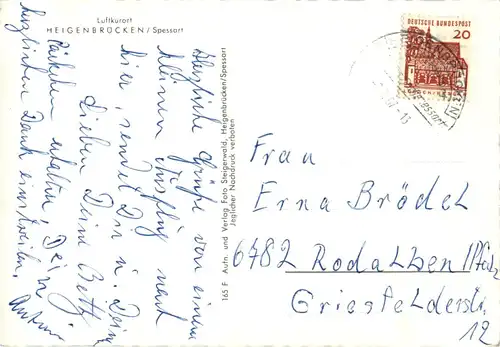 Luftkurort
HEIGENBRÜCKEN / Spessart
Herzliche Grüße von einem
kleinen Ausflug nach
hier, sendet Dir u. Deinen
Lieben Deine Betty.
Päckchen erhalten, Dein
herzlichen Dank einstweilen.
165 F Aufn. und Verlag Foto Steigerwald, Heigenbrücken/Spessart
Jeglicher Nachdruck verboten
DEUTSCHE BUNDESPOST
20
Frau
Erna Brödel
6782 Rodalben/Pfalz
Griesfelderstr.
12